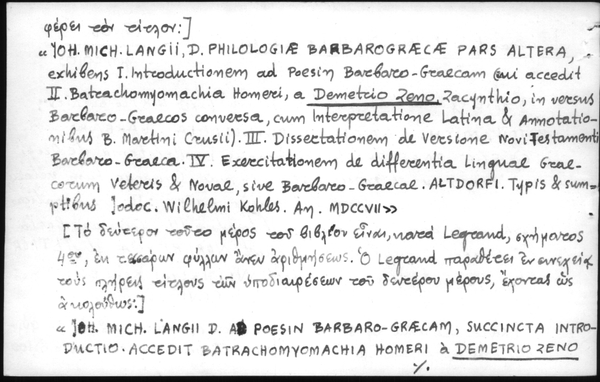 φέρει τὸν τίτλον:]
« JOH. MICH. LANGII, D. PHILOLOGIÆ BARBAROGRÆCÆ PARS ALTERA,
exhibens I. Introductionem ad Poesin Barbaro-Graecam (cui accedit
II. Batrachomyomachia Homeri, a Demetrio Zeno, Zacynthio, in versus
Barbaro-Graecos conversa, cum Interpretatione Latina & Annotatio-
nibus B. Martini Crusii). III. Dissertationem de Versione Novi Testamenti
Barbaro-Graeca. IV. Exercitationem de differentia Linguae Grae-
corum Veteris & Novae, sive Barbaro-Graecae. ALTDORFI. Typis & sum-
ptibus Jodoc. Wilhelmi Kohles. An. MDCCVII»
[Τὸ δεύτερον τοῦτο μέρος τοῦ βιβλίου εἶναι, κατὰ Legrand, σχήματος
4ου, ἐκ τεσσάρων φύλλων ἄνευ ἀριθμήσεως. Ὁ Legrand παραθέτει ἐν συνεχείᾳ
τοὺς πλήρεις τίτλους τῶν ὑποδιαιρέσεων τοῦ δευτέρου μέρους, ἔχοντας ὡς
ἀκολούθως:]
« JOH. MICH. LANGII D. AD POESIN BARBARO-GRÆCAM, SUCCINTA INTRO-
DUCTIO. ACCEDIT BATRACHOMYOMACHIA HOMERI à DEMETRIO ZENO
./.